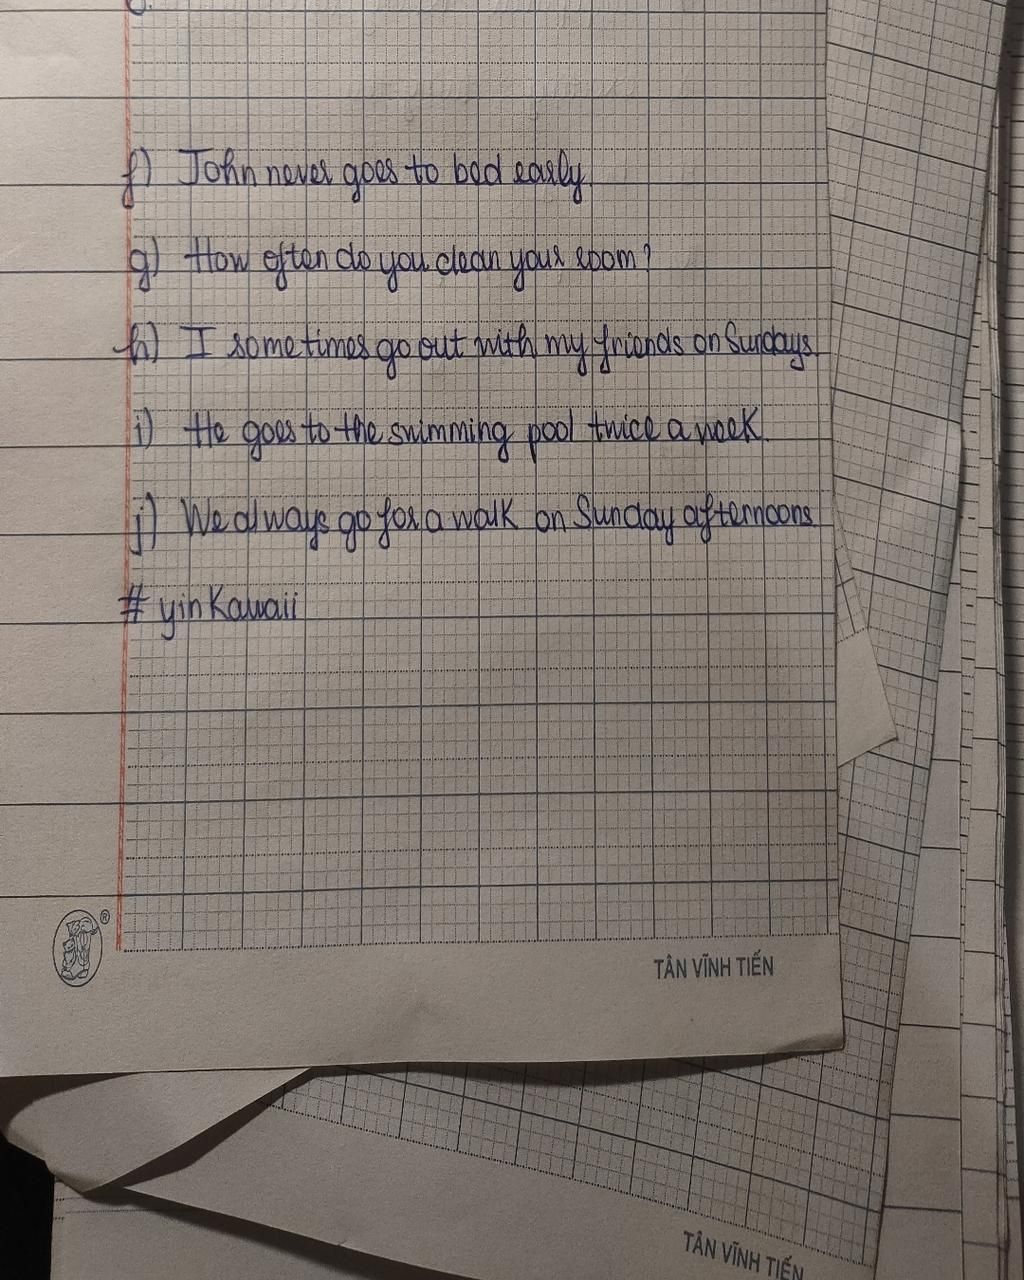 f) John never goes to bed early.
g) How often do you clean your room?
h) I sometimes go out with my friends on Sundays.
i) He goes to the swimming pool twice a week.
j) We always go for a walk on Sunday afternoons
# yinKawaii
®
TÂN VĨNH TIẾN
TÂN VĨNH TIẾN